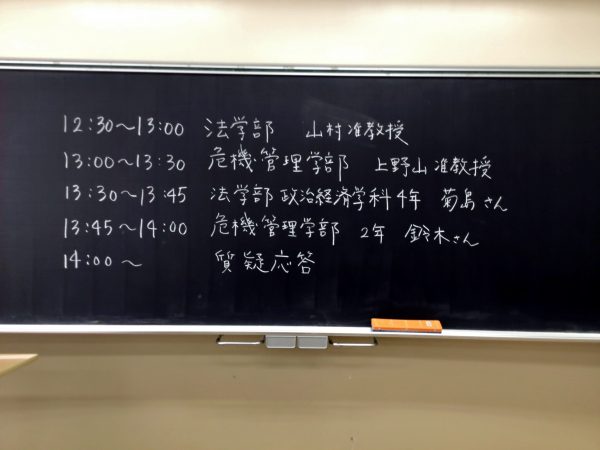 12:30～13:00 法学部 山村准教授
13:00～13:30 危機管理学部 上野山准教授
13:30～13:45 法学部政治経済学科4年 菊島さん
13:45～14:00 危機管理学部 2年 鈴木さん
14:00～ 質疑応答